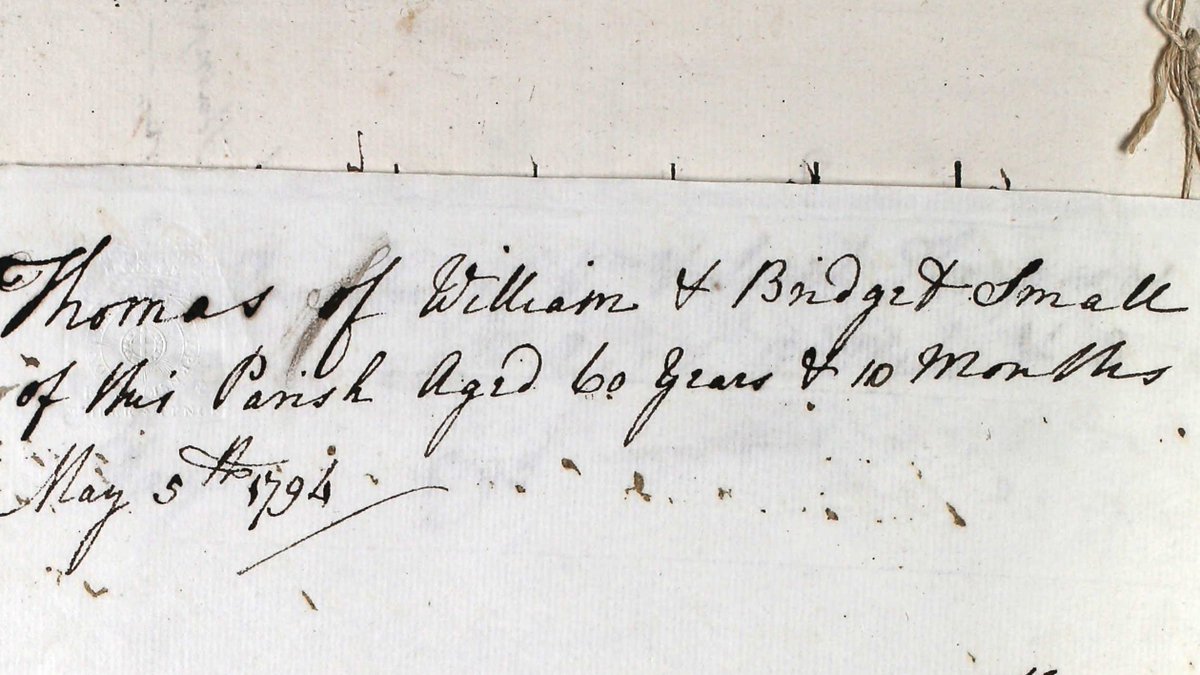 Thomas of William & Bridget Small
of this Parish Aged 60 Years & 10 Months
May 5th 1794